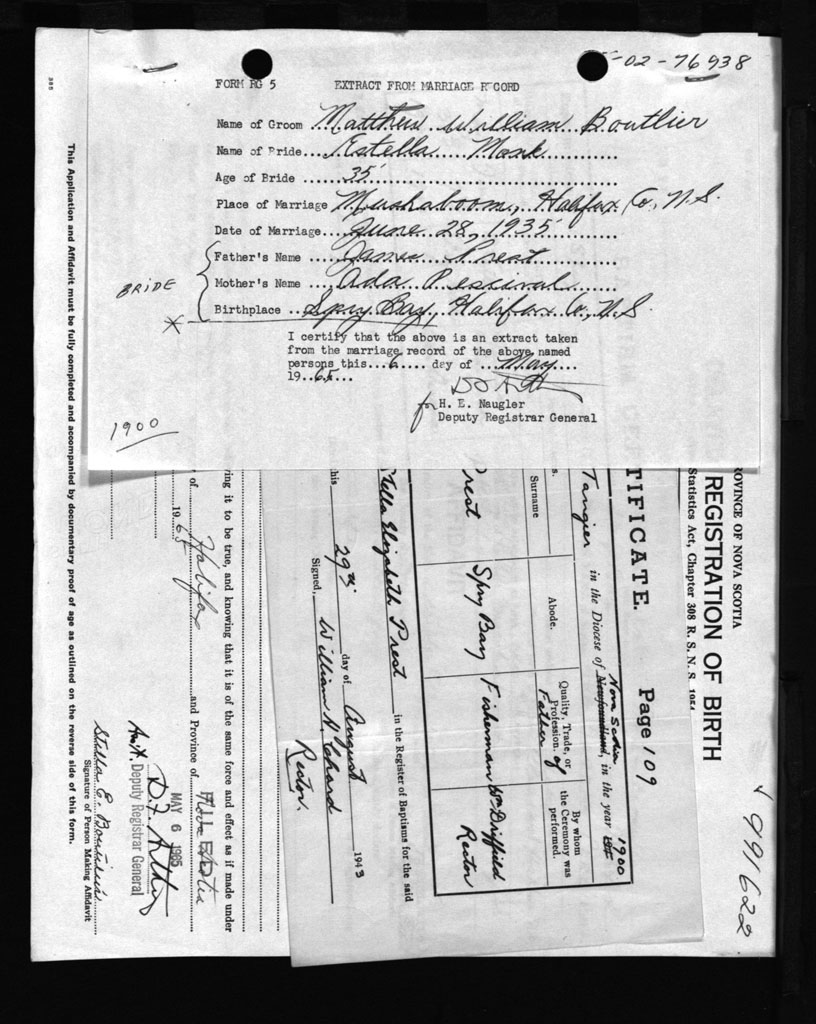 02-76938
FORM RG 5 EXTRACT FROM MARRIAGE RECORD
Name of Groom ...Matthew William Boutlier
Name of Bride...Estella Monk...
Age of Bride ...35...
Place of Marriage Mushaboom, Halifax Co., N.S.
Date of Marriage...June 28, 1935...
Father's Name ...James Prest...
BRIDE
Mother's Name ...Ada Percival...
Birthplace ...Spry Bay, Halifax Co., N.S.
I certify that the above is an extract taken
from the marriage record of the above named
persons this...6....day of ...May...
19..65...
for H. E. Naugler
Deputy Registrar General
1900
395
This Application and Affidavit must be fully completed and accompanied by documentary proof of age as outlined on the reverse side of this form.
ROVINCE OF NOVA SCOTIA
REGISTRATION OF BIRTH
Statistics Act, Chapter 308 R. S. N. S. 1954
991622
TIFICATE. Page 109
Tangier in the Diocese of Newfoundland, Nova Scotia in the year 1900
Surname
Abode.
Quality, Trade, or
Profession. of
Father
By whom
the Ceremony was
performed.
Prest
Spry Bay
Fisherman
Wm Driffield
Rector
tella Elizabeth Prest in the Register of Baptisms for the said
his 29th day of August 1943
Signed,
Rector.
ing it to be true, and knowing that it is of the same force and effect as if made under
of Halifax and Province of Nova Scotia
1965
MAY 6 1965
Deputy Registrar General
Stella E. Boutilier
Signature of Person Making Affidavit